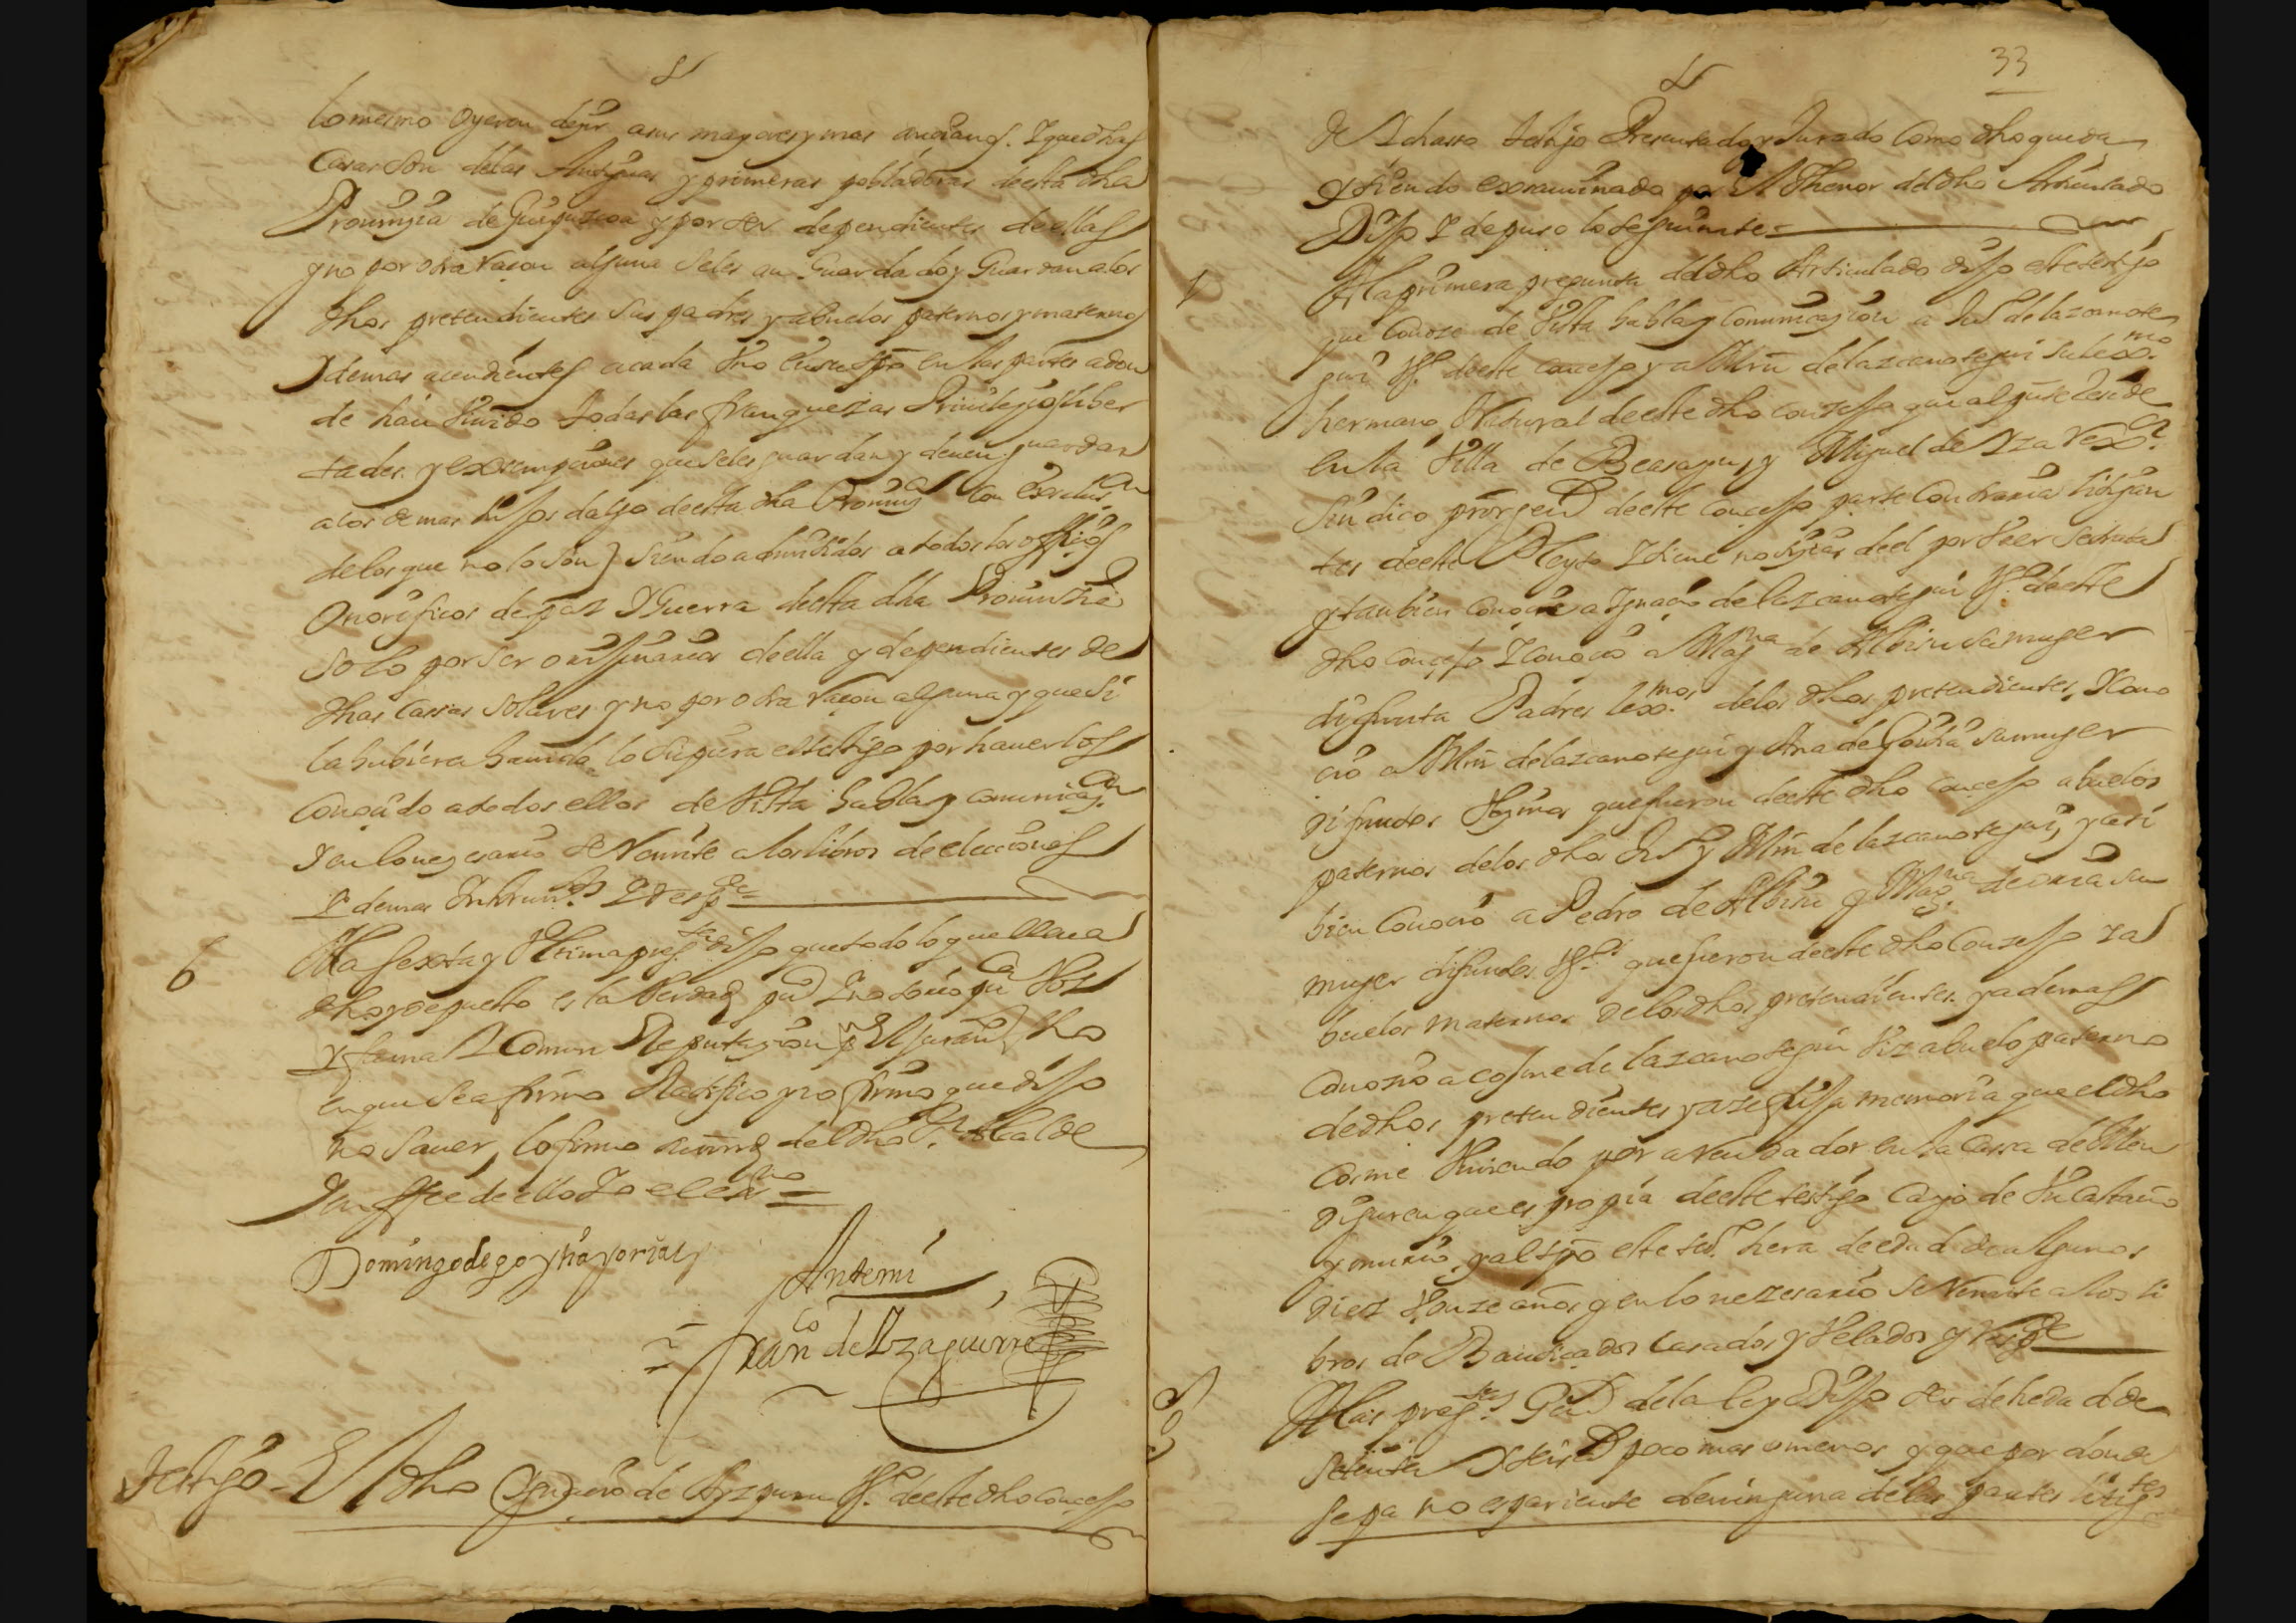 lo mesmo oyeron deçir a sus mayores y mas ançianos. Y que dhas
Casas son de las Antiguas y primeras pobladoras de esta dha
Prouinçia de Guipuzcoa y por ser dependientes de ellas
y no por otra raçon alguna se les an Guardado y Guardan a los
dhos pretendientes sus padres y abuelos paternos y maternos
y demas asendientes a cada Uno en su tpo en las partes adon
de han Viuido todas las franquezas Priuilegios liber
tades y exsempçiones que se les guardan y deuen guardar
a los demas hijos dalgo de esta dha Prouinçª con exclusᵒⁿ
de los que no lo son, siendo admitidos a todos los offiçios
Onorificos de paz y Guerra de esta dha Prouinzia
solo por ser originarios de ella y dependientes de
dhas Cassas Solares y no por otra raçon alguna y que si
la hubiera hauido lo supiera este testigo por hauerlos
Conoçido a todos ellos de Vista habla y comunicaçᵒⁿ
Y en lo neçesario se Remite a los libros de elecciones
Y demas Instrumᵗᵒˢ Y respᵈᵉ
6 A la sexta y Ultima pregᵗᵃ dijo que todo lo que lleua
dho y depuesto es la Verdad puᶜᵒ Y notorio puᶜᵃ Voz
Y fama Y Comun Reputaçion so el juramᵗᵒ dho
en que se afirmo Ratifico y no firmo que dijo
no sauer, lo firmo su mrd del dho Sʳ Alcalde
Y en ffee de ello Yo el esnᵒ =
Domingo de goytia y oriau
Antemi
Franᶜᵒ de Yzaguirre
Testigo - El dho Ignaçio de Ayzpuru Vᵒ de este dho conçejo
33
de Ycharso testigo Presentado y Jurado Como dho queda
y siendo exsaminado por el Thenor del dho Articulado
Dijo Y depuso lo seguiente =
1 A la primera pregunta del dho Articulado dijo este testigo
que Conoze de Vista habla y Comunicaçion a Juº de lazcanote
gui Vᵒ de este conçejo y a Mrn de lazcanotegui su lexᵐᵒ
hermano Natural de este dho conzejo que al pnte reside
en la Villa de Beasayn, y Miguel de Yza Vexoᵒ
Sindico pror genˡ de este Conçejo parte Contraria litigan
tes de este Pleyto Y tiene notiçias de el por Veer se trata
y tambien Conoçe a Ignaçio de lazcanotegui Vᵒ de este
dho conçejo Y Conoçio a Magⁿᵃ de Albisu su muger
difunta Padres lexᵐᵒˢ de los dhos pretendientes, Y Cono
çio a Mrn de lazcanotegui y Ana de Goitia su muger
difuntos Vezinos que fueron de este dho conçejo abuelos
paternos de los dhos Juº y Mrn de lazcanotegui, y assi
bien Conoçio a Pedro de Albisu y Magⁿᵃ de oria su
muger difuntos Vᵒˢ que fueron de este dho Conzejo Y a
buelos maternos de los dhos pretendientes y ademas
Conozio a Cosme de lazcanotegui Visabuelo paterno
de dhos pretendientes y aze dijo memoria que el dho
Cosme Viuiendo por arrendador en la Cassa de
que es propia de este testigo Cayo de Un Castaño
y murio, y al tpo este tesᵒ hera de edad de algunos
diez Y onze años y en lo nezesario se Remite a los li
bros de Bautiçados Casados y Velados y respᵈᵉ
A las pregᵗᵃˢ Genˡ de la ley Dijo ser de hedad de
setenta Y seis aˢ poco mas o menos y que por donde
sepa no es pariente de ninguna de las partes litigᵗᵉˢ